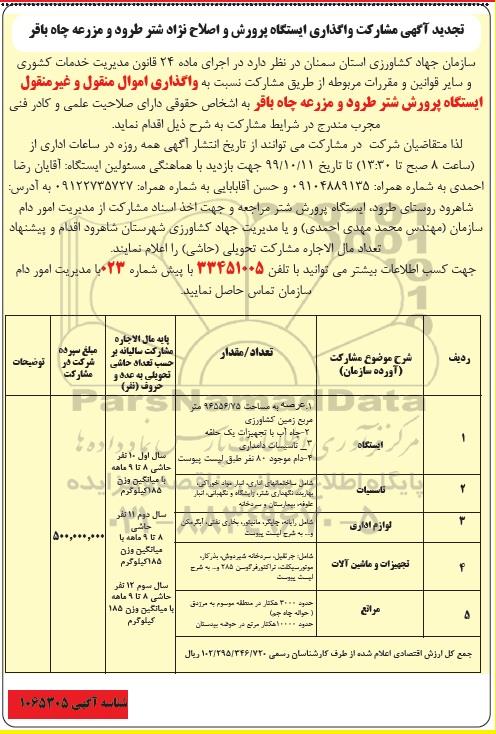 تجدید آگهی مشارکت واگذاری ایستگاه پرورش و اصلاح نژاد شتر طرود و مزرعه چاه باقر
سازمان جهاد کشاورزی استان سمنان در نظر دارد در اجرای ماده ۲۴ قانون مدیریت خدمات کشوری
و سایر قوانین و مقررات مربوطه از طریق مشارکت نسبت به واگذاری اموال منقول و غیرمنقول
ایستگاه پرورش شتر طرود و مزرعه چاه باقر به اشخاص حقوقی دارای صلاحیت علمی و کادر فنی
مجرب مندرج در شرایط مشارکت به شرح ذیل اقدام نماید.
لذا متقاضیان شرکت در مشارکت می توانند از تاریخ انتشار آگهی همه روزه در ساعات اداری از
(ساعت ۸ صبح تا ۱۳:۳۰) تا تاریخ ۹۹/۱۰/۱۱ جهت بازدید با هماهنگی مسئولین ایستگاه: آقایان رضا
احمدی به شماره همراه: ۰۹۱۰۴۸۸۹۱۳۵ و حسن آقابابایی به شماره همراه: ۰۹۱۲۲۷۳۵۷۲۷ به آدرس:
شاهرود روستای طرود، ایستگاه پرورش شتر مراجعه و جهت اخذ اسناد مشارکت از مدیریت امور دام
سازمان (مهندس محمد مهدی احمدی) و یا مدیریت جهاد کشاورزی شهرستان شاهرود اقدام و پیشنهاد
تعداد مال الاجاره مشارکت تحویلی (حاشی) را اعلام نمایند.
جهت کسب اطلاعات بیشتر می توانید با تلفن ۳۳۴۵۱۰۰۵ با پیش شماره ۰۲۳ با مدیریت امور دام
سازمان تماس حاصل نمایید.
ردیف
شرح موضوع مشارکت
(آورده سازمان)
تعداد/مقدار
پایه مال الاجاره
مشارکت سالیانه بر
حسب تعداد حاشی
تحویلی به عدد و
حروف (نفر)
مبلغ سپرده
شرکت در
مشارکت
توضیحات
۱
ایستگاه
۱.عرصه به مساحت ۹۶۵۵۶/۷۵ متر
مربع زمین کشاورزی
۲-چاه آب با تجهیزات یک حلقه
۳_ تاسیسات دامداری
۴-دام موجود ۸۰ نفر طبق لیست پیوست
۲
تاسیسات
شامل ساختمانهای اداری، انبار مواد خوراکی،
بهاربند نگهداری شتر، زایشگاه و نگهبانی، انبار
علوفه، بیمارستان و سردخانه
۳
لوازم اداری
شامل رایانه، چاپگر، مانیتور، بخاری نفتی، آبگرمکن
و... به شرح لیست پیوست
۴
تجهیزات و ماشین آلات
شامل: جرثقیل، سردخانه شیردوش، بذرکار،
موتورسیکلت، تراکتورفرگوسن ۲۸۵ و... به شرح
لیست پیوست
۵
مراتع
حدود ۳۰۰۰ هکتار در منطقه موسوم به مرزدق
( حواله چاه جم)
حدود ۱۰۰۰۰هکتار مرتع در حوضه بیدستان
سال اول ۱۰ نفر
حاشی ۸ تا ۹ ماهه
با میانگین وزن
۱۸۵کیلوگرم
سال دوم ۱۱ نفر
حاشی
۸ تا ۹ ماهه با
میانگین وزن
۱۸۵کیلوگرم
سال سوم ۱۲ نفر
حاشی ۸ تا ۹ ماهه
با میانگین وزن ۱۸۵
کیلوگرم
۵۰۰,۰۰۰,۰۰۰
جمع کل ارزش اقتصادی اعلام شده از طرف کارشناسان رسمی ۱۰۲/۲۹۵/۳۴۶/۷۲۰ ریال
شناسه آگهی ۱۰۶۵۳۰۵
ParsNamadData